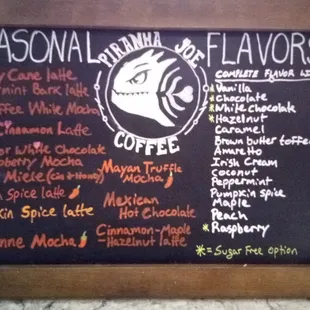 ASONAL
PIRANHA JOE
COFFEE
FLAVORS
y Cane latte
rmint Bark latte
ffee White Mocha
Cinnamon Latte
or White Chocolate
pberry Mocha
Miele
n Spice latte
kin Spice latte
nne Mocha
Mayan Truffle
Mocha
Mexican
Hot Chocolate
Cinnamon-Maple
-Hazelnut latte
Complete Flavor Li
*Vanilla
*Chocolate
*White Chocolate
*Hazelnut
Caramel
Brown butter toffee
Amaretto
Irish Cream
coconut
Peppermint
Pumpkin spice
Maple
Peach
*Raspberry
*= Sugar Free option